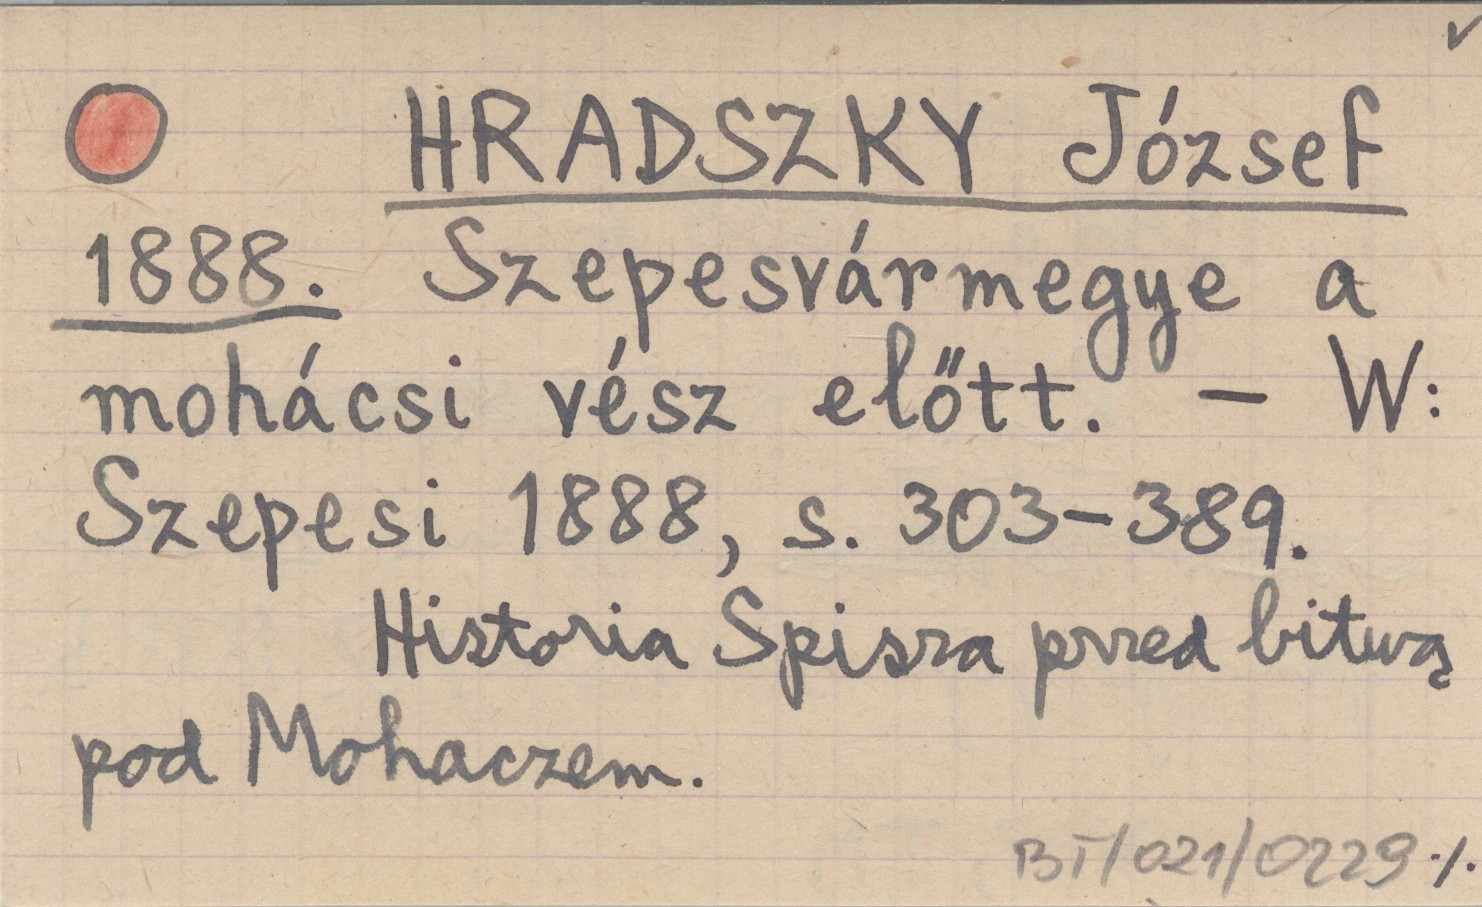 HRADSZKY József
1888. Szepesvármegye a
mohácsi vész előtt. – W:
Szepesi 1888, s. 303–389.
Historia Spisza przed bitwą
pod Mohaczem.
BT/021/0229 ./.